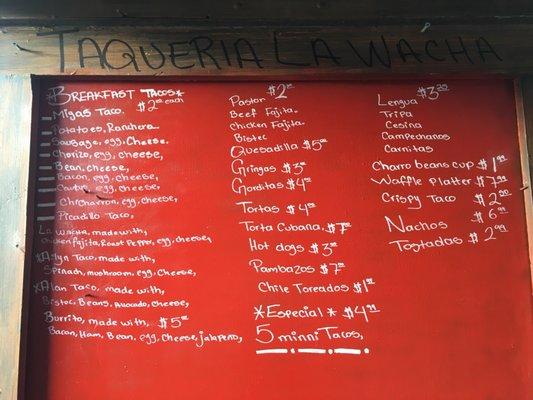 TAQUERIA LA WACHA
*BREAKFAST TACOS*
Migas Taco. $2 00 each
Potatoes, Ranchera
Sausage, egg, Cheese,
Chorizo, egg, cheese,
Bean, cheese,
Bacon, egg, cheese,
egg, cheese,
Chicharron, egg, cheese,
Picadillo Taco,
La Wacha, made with,
chicken fajita, Roast Pepper, egg, cheese,
Taco, made with,
Spinash, mushroom, egg, cheese,
*Alan Taco, made with,
Bistec, Beans, Avocado, cheese,
Burrito, made with, $5 00
Bacon, Ham, Bean, egg, cheese, jalapeño,
Pastor $2
Beef Fajita.
Chicken Fajita.
Bistec
Quesadilla $5 00
Gringas $3
Gorditas $4
Tortas $4
Torta Cubana $7
Hot dogs $3
Pambazos $7
Chile Toreados $1
*Especial* $4 99
5 minni Tacos,
Lengua $3
Tripa
Cesina
Campechanos
Carnitas
Charro beans cup $1 99
Waffle Platter $7
Crispy Taco $2
Nachos $6 99
Tostadas $2 99